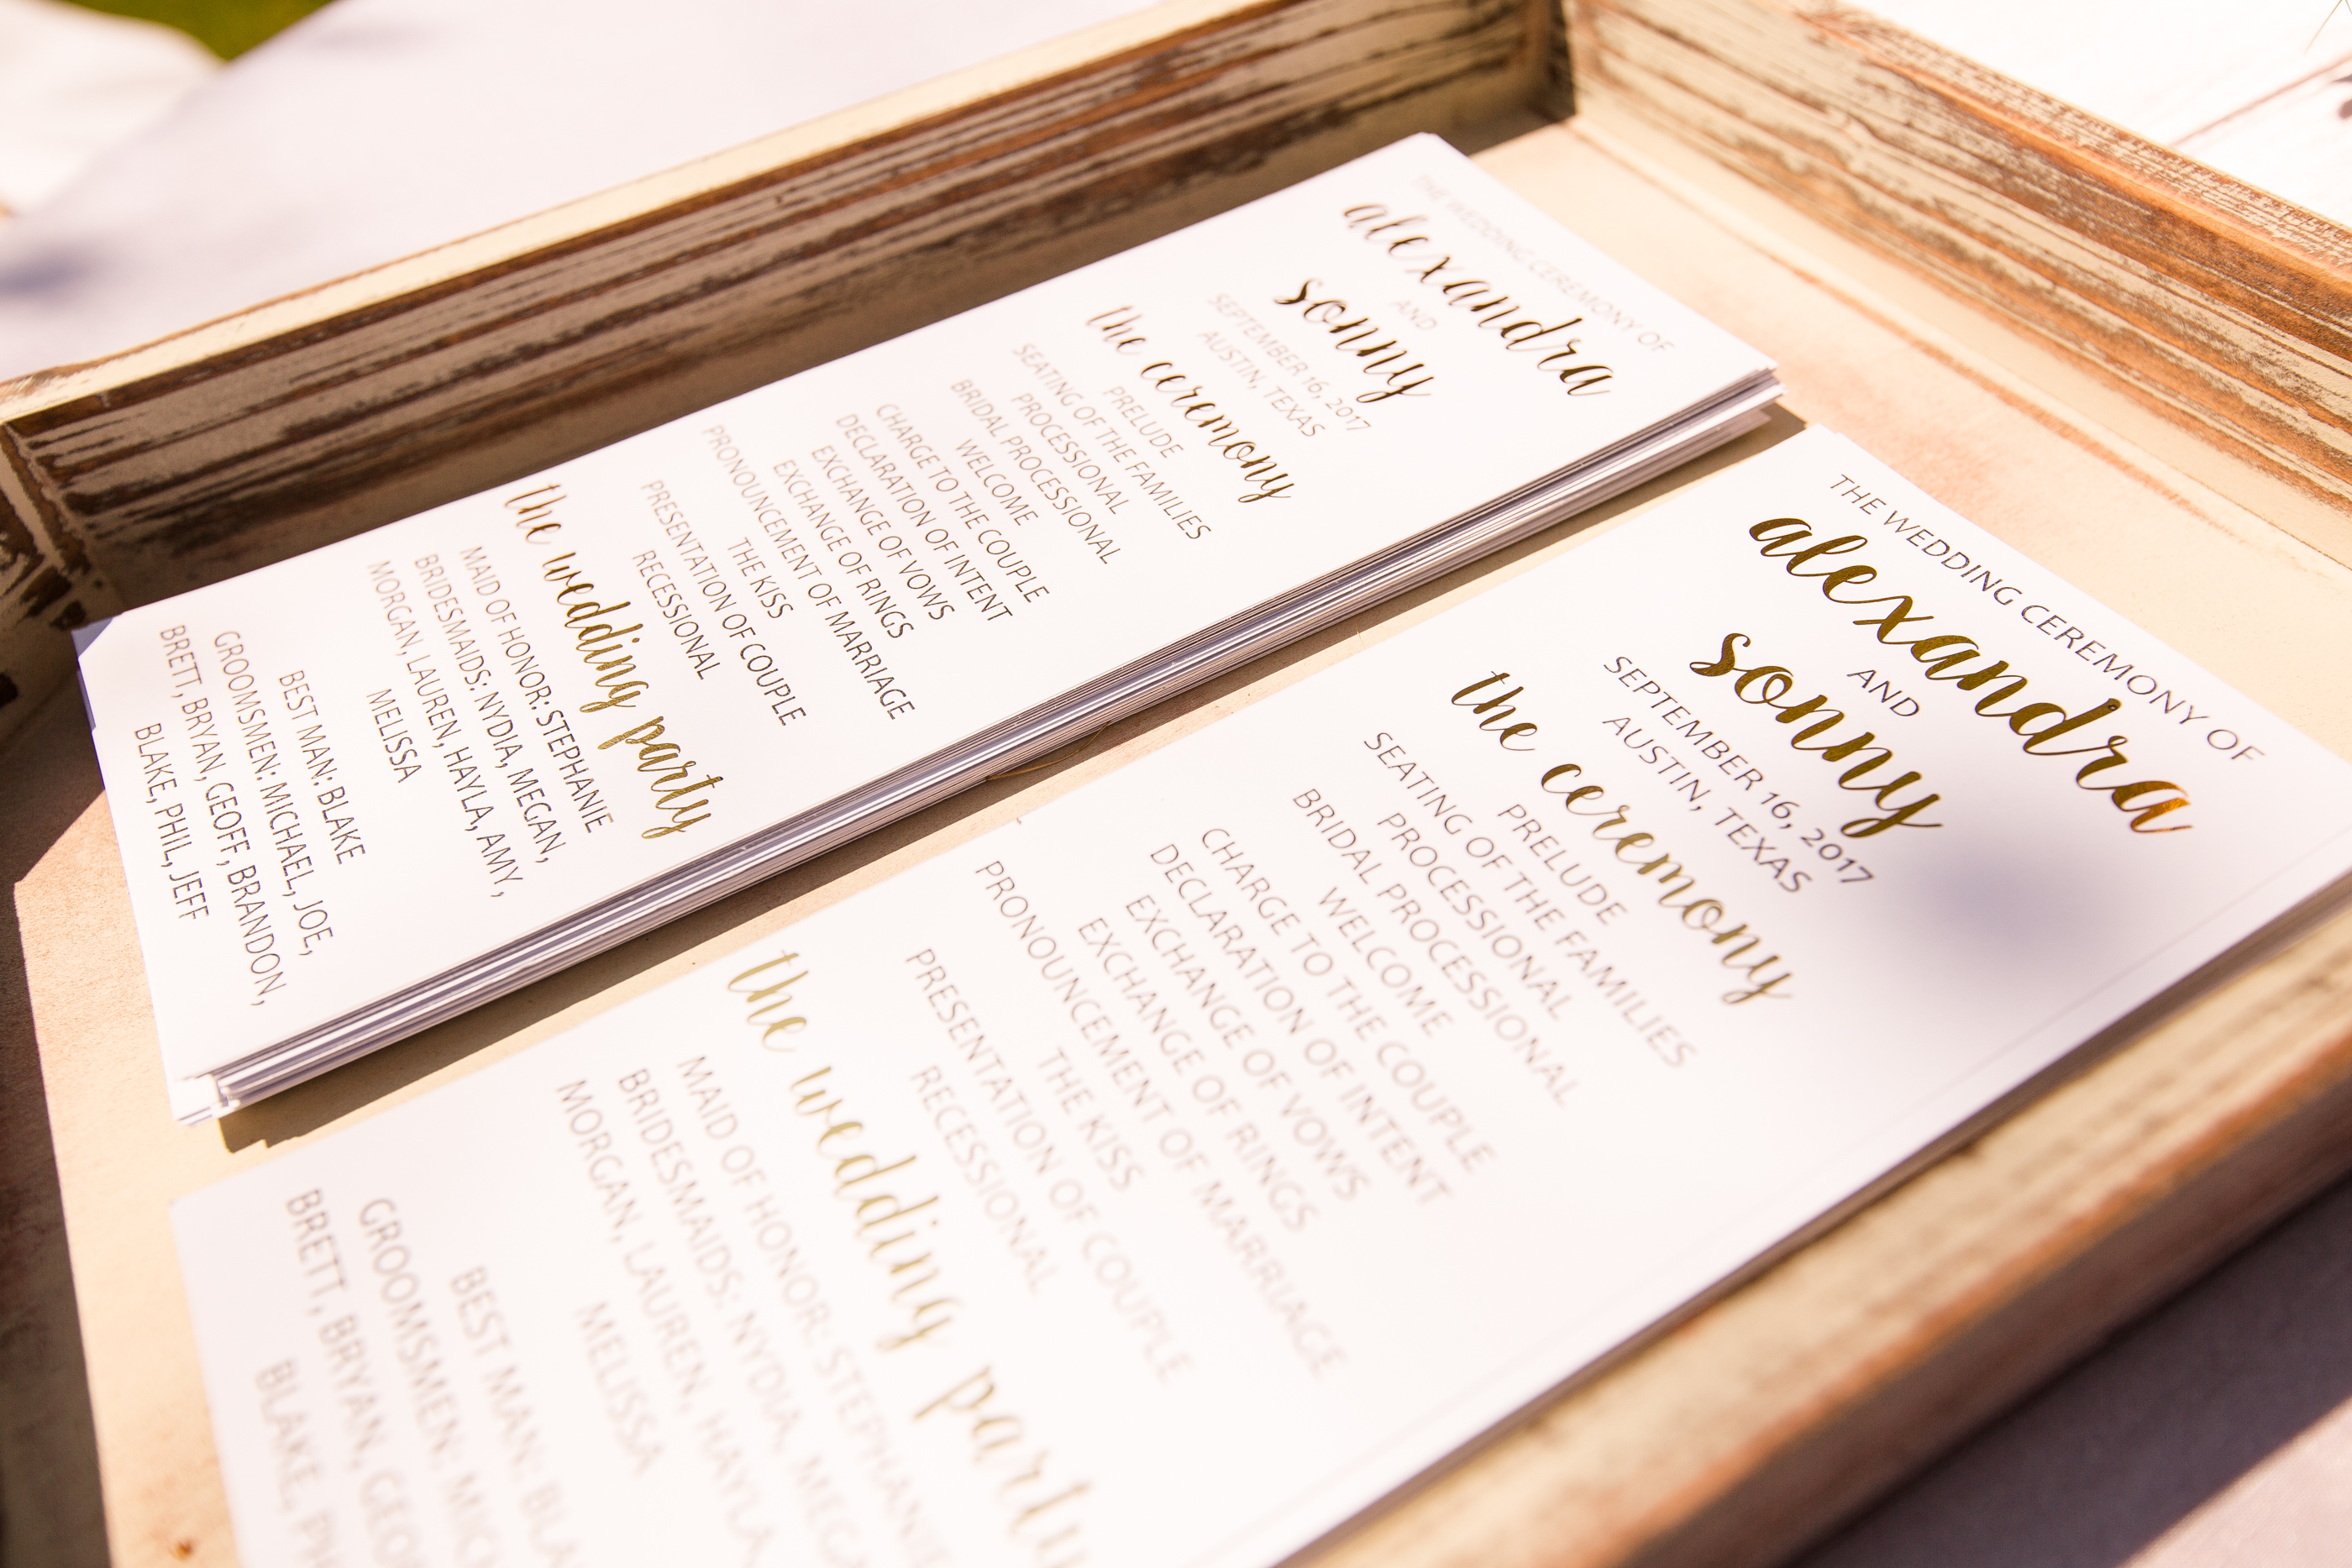 THE WEDDING CEREMONY OF
alexandra
AND
sonny
SEPTEMBER 16, 2017
AUSTIN, TEXAS
the ceremony
PRELUDE
SEATING OF THE FAMILIES
PROCESSIONAL
BRIDAL PROCESSIONAL
WELCOME
CHARGE TO THE COUPLE
DECLARATION OF INTENT
EXCHANGE OF VOWS
EXCHANGE OF RINGS
PRONOUNCEMENT OF MARRIAGE
THE KISS
PRESENTATION OF COUPLE
RECESSIONAL
the wedding party
MAID OF HONOR: STEPHANIE
BRIDESMAIDS: NYDIA, MEGAN,
MORGAN, LAUREN, HAYLA, AMY,
MELISSA
BEST MAN: BLAKE
GROOMSMEN: MICHAEL, JOE,
BRETT, BRYAN, GEOFF, BRANDON,
BLAKE, PHIL, JEFF
THE WEDDING CEREMONY OF
alexandra
AND
sonny
SEPTEMBER 16, 2017
AUSTIN, TEXAS
the ceremony
PRELUDE
SEATING OF THE FAMILIES
PROCESSIONAL
BRIDAL PROCESSIONAL
WELCOME
CHARGE TO THE COUPLE
DECLARATION OF INTENT
EXCHANGE OF VOWS
EXCHANGE OF RINGS
PRONOUNCEMENT OF MARRIAGE
THE KISS
PRESENTATION OF COUPLE
RECESSIONAL
the wedding party
MAID OF HONOR: STEPHANIE
BRIDESMAIDS: NYDIA, MEGA
MORGAN, LAUREN, HAYLA,
MELISSA
BEST MAN: BLA
GROOMSMEN: MICH
BRETT, BRYAN, GEO
BLAKE, PH